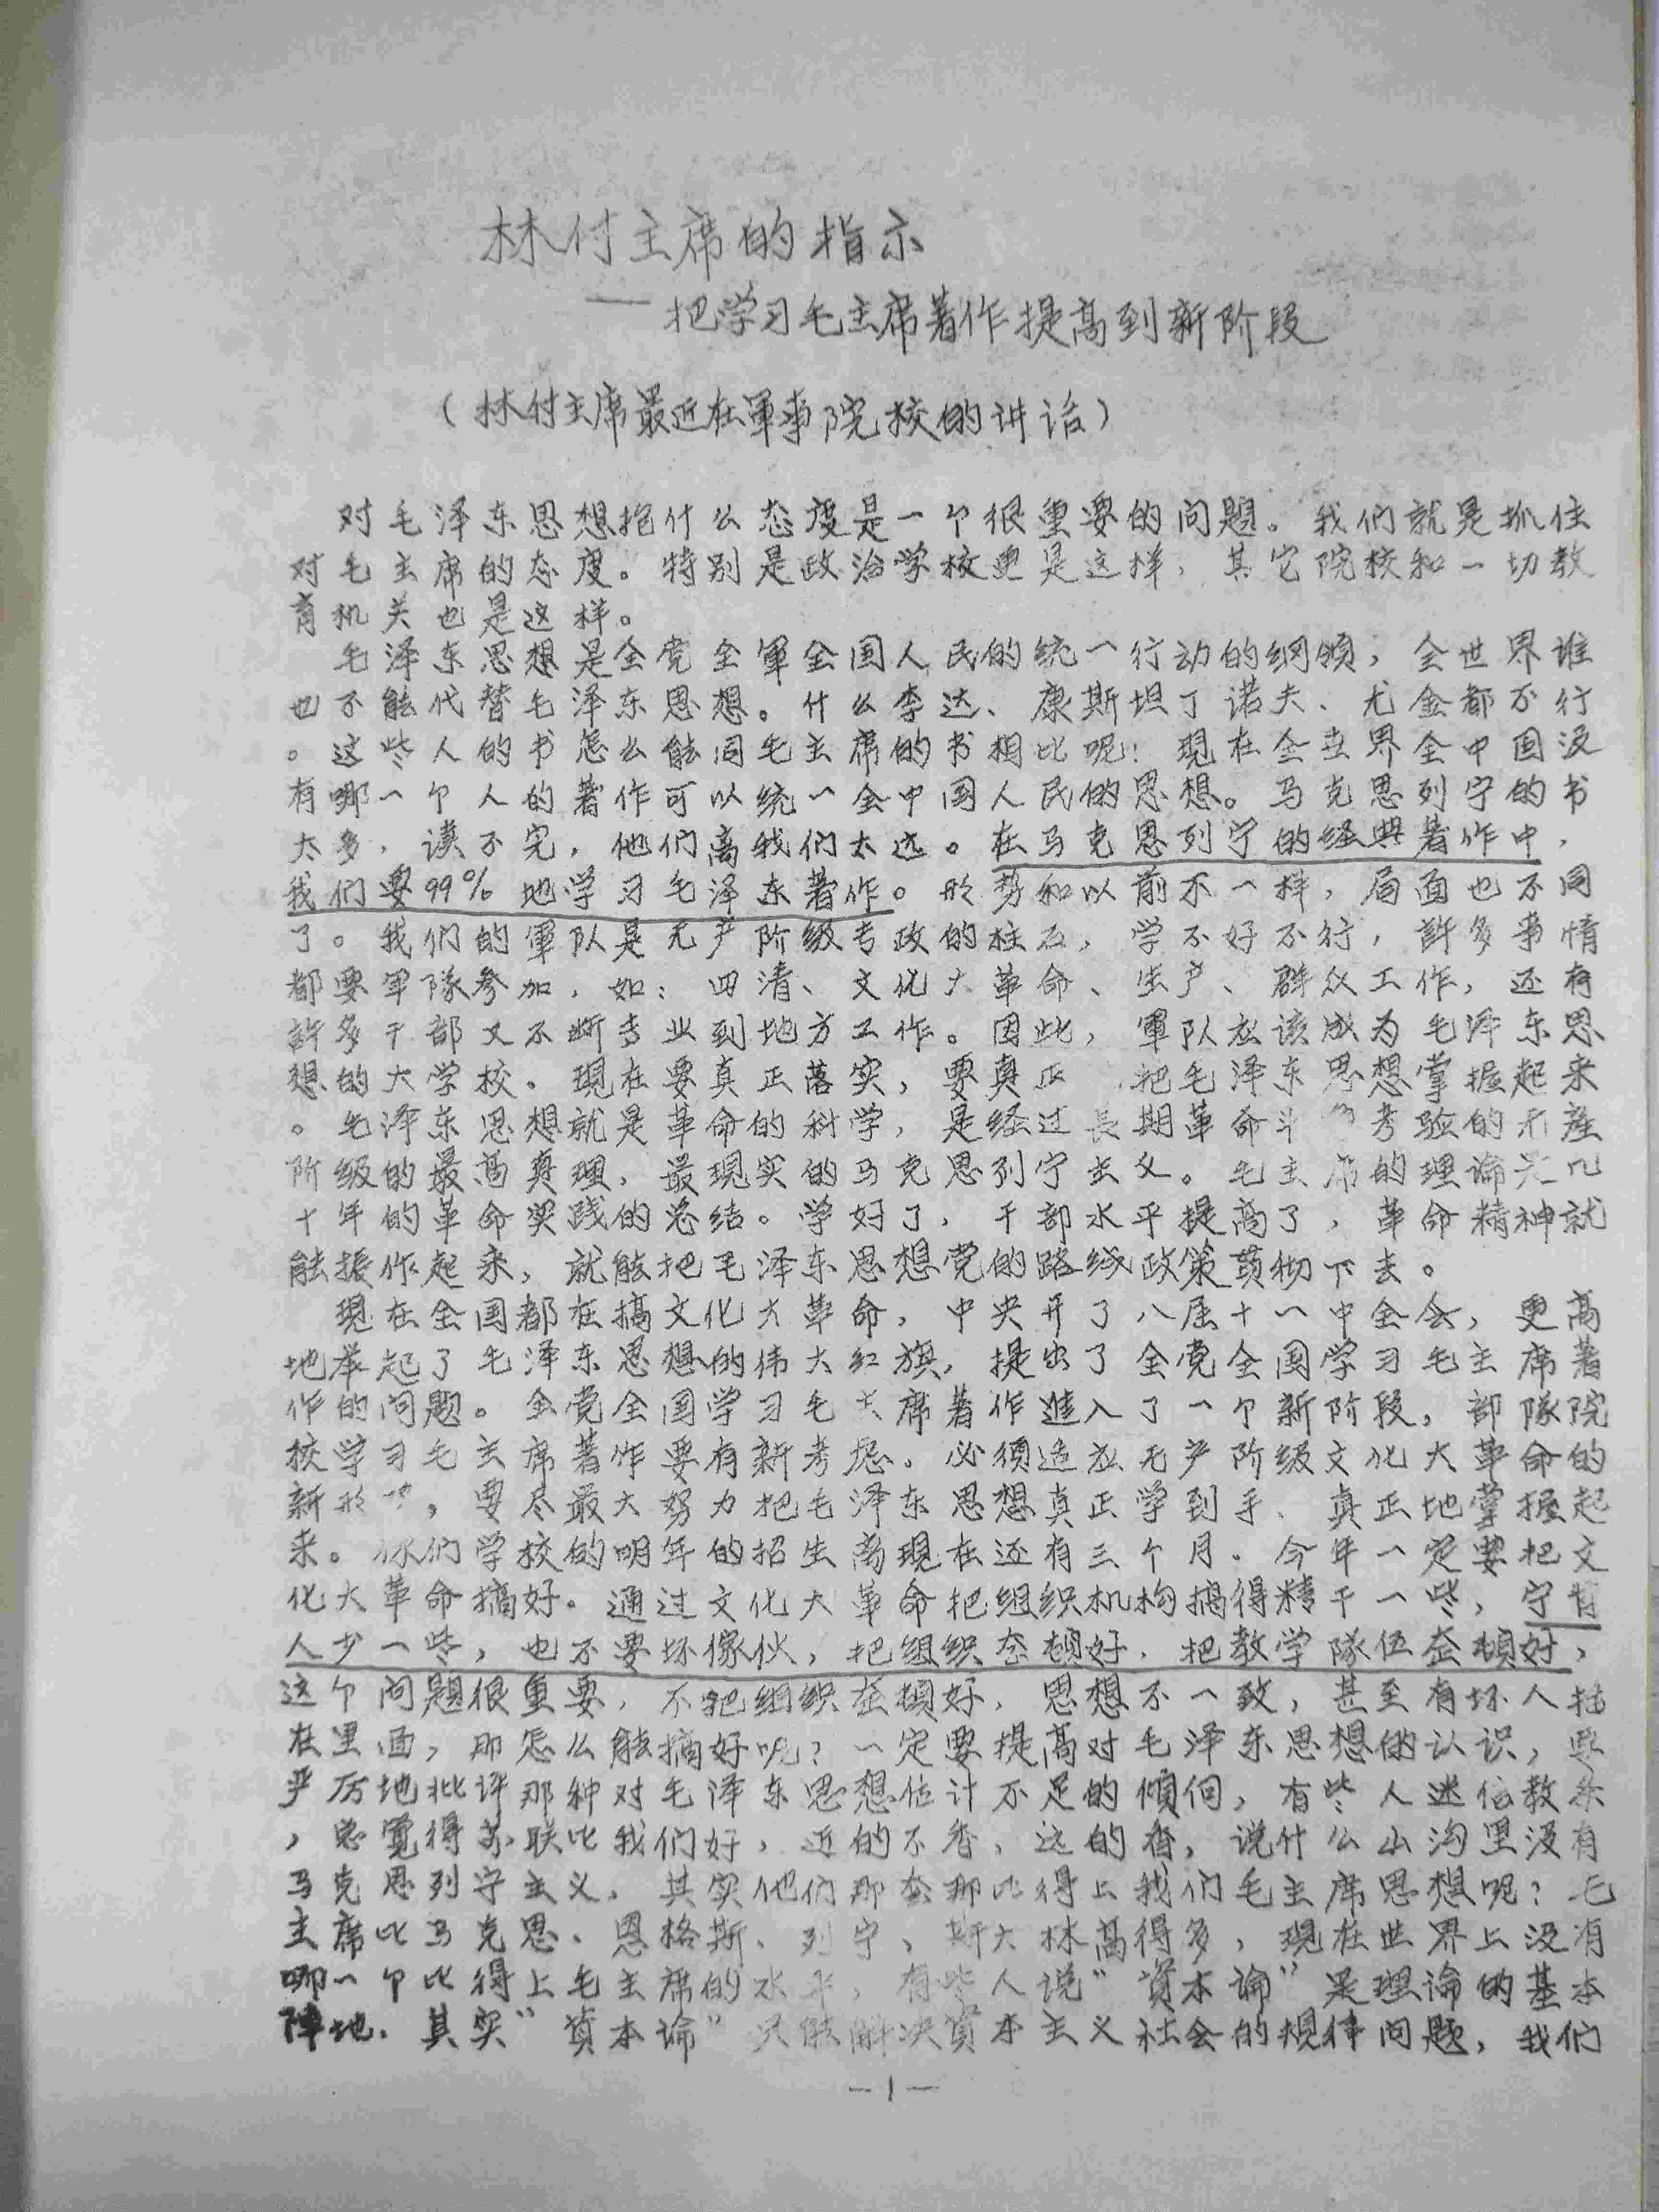 林付主席的指示
——把学习毛主席著作提高到新阶段
（林付主席最近在軍事院校的讲话）
对毛泽东思想抱什么态度是一个很重要的问题。我们就是抓住
对毛主席的态度。特别是政治学校更是这样，其它院校和一切教
育机关也是这样。
毛泽东思想是全党全軍全国人民的统一行动的纲领，全世界谁
也不能代替毛泽东思想。什么李达、康斯坦丁诺夫、尤金都不行
。这些人的书怎么能同毛主席的书相比呢！现在全世界全中国没
有哪一个人的著作可以统一全中国人民的思想。马克思列宁的书
太多，读不完，他们离我们太远。在马克思列宁的经典著作中，
我们要99%地学习毛泽东著作。形势和以前不一样，局面也不同
了。我们的軍队是无产阶级专政的柱石，学不好不行，許多事情
都要军隊参加，如：四清、文化大革命、生产、群众工作，还有
許多干部又不断专业到地方工作。因此，軍队应该成为毛泽东思
想的大学校。現在要真正落实，要真正把毛泽东思想掌握起来
。毛泽东思想就是革命的科学，是经过長期革命斗考验的无産
阶级的最高真理，最現实的马克思列宁主义。毛主席的理论是几
十年的革命实践的总结。学好了，干部水平提高了，革命精神就
能振作起来，就能把毛泽东思想党的路线政策贯彻下去。
現在全国都在搞文化大革命，中央开了八届十一中全会，更高
地举起了毛泽东思想的伟大红旗，提出了全党全国学习毛主席著
作的问题。全党全国学习毛主席著作進入了一个新阶段，部隊院
校学习毛主席著作要有新考虑。必须适应无产阶级文化大革命的
新形势，要尽最大努力把毛泽东思想真正学到手、真正地掌握起
来。你们学校的明年的招生离現在还有三个月．今年一定要把文
化大革命搞好。通过文化大革命把组织机构搞得精干一些，宁肯
人少一些，也不要坏傢伙，把组织整顿好，把教学隊伍整顿好，
这个问题很重要，不把组织整顿好，思想不一致，甚至有坏人插
在里面，那怎么能搞好呢？一定要提高对毛泽东思想的认识，要
严厉地批评那种对毛泽东思想估计不足的傾向，有些人迷信教条
，总覚得苏联比我们好，近的不香，远的香，说什么山沟里没有
马克思列宁主义，其实他们那套那比得上我们毛主席思想呢？毛
主席比马克思、恩格斯、列宁、斯大林高得多，現在世界上没有
哪一个比得上毛主席的水平，有些人说“資本论”是理論的基本
陣地．其实“資本論”只能解决資本主义社会的規律问题，我们
—1—